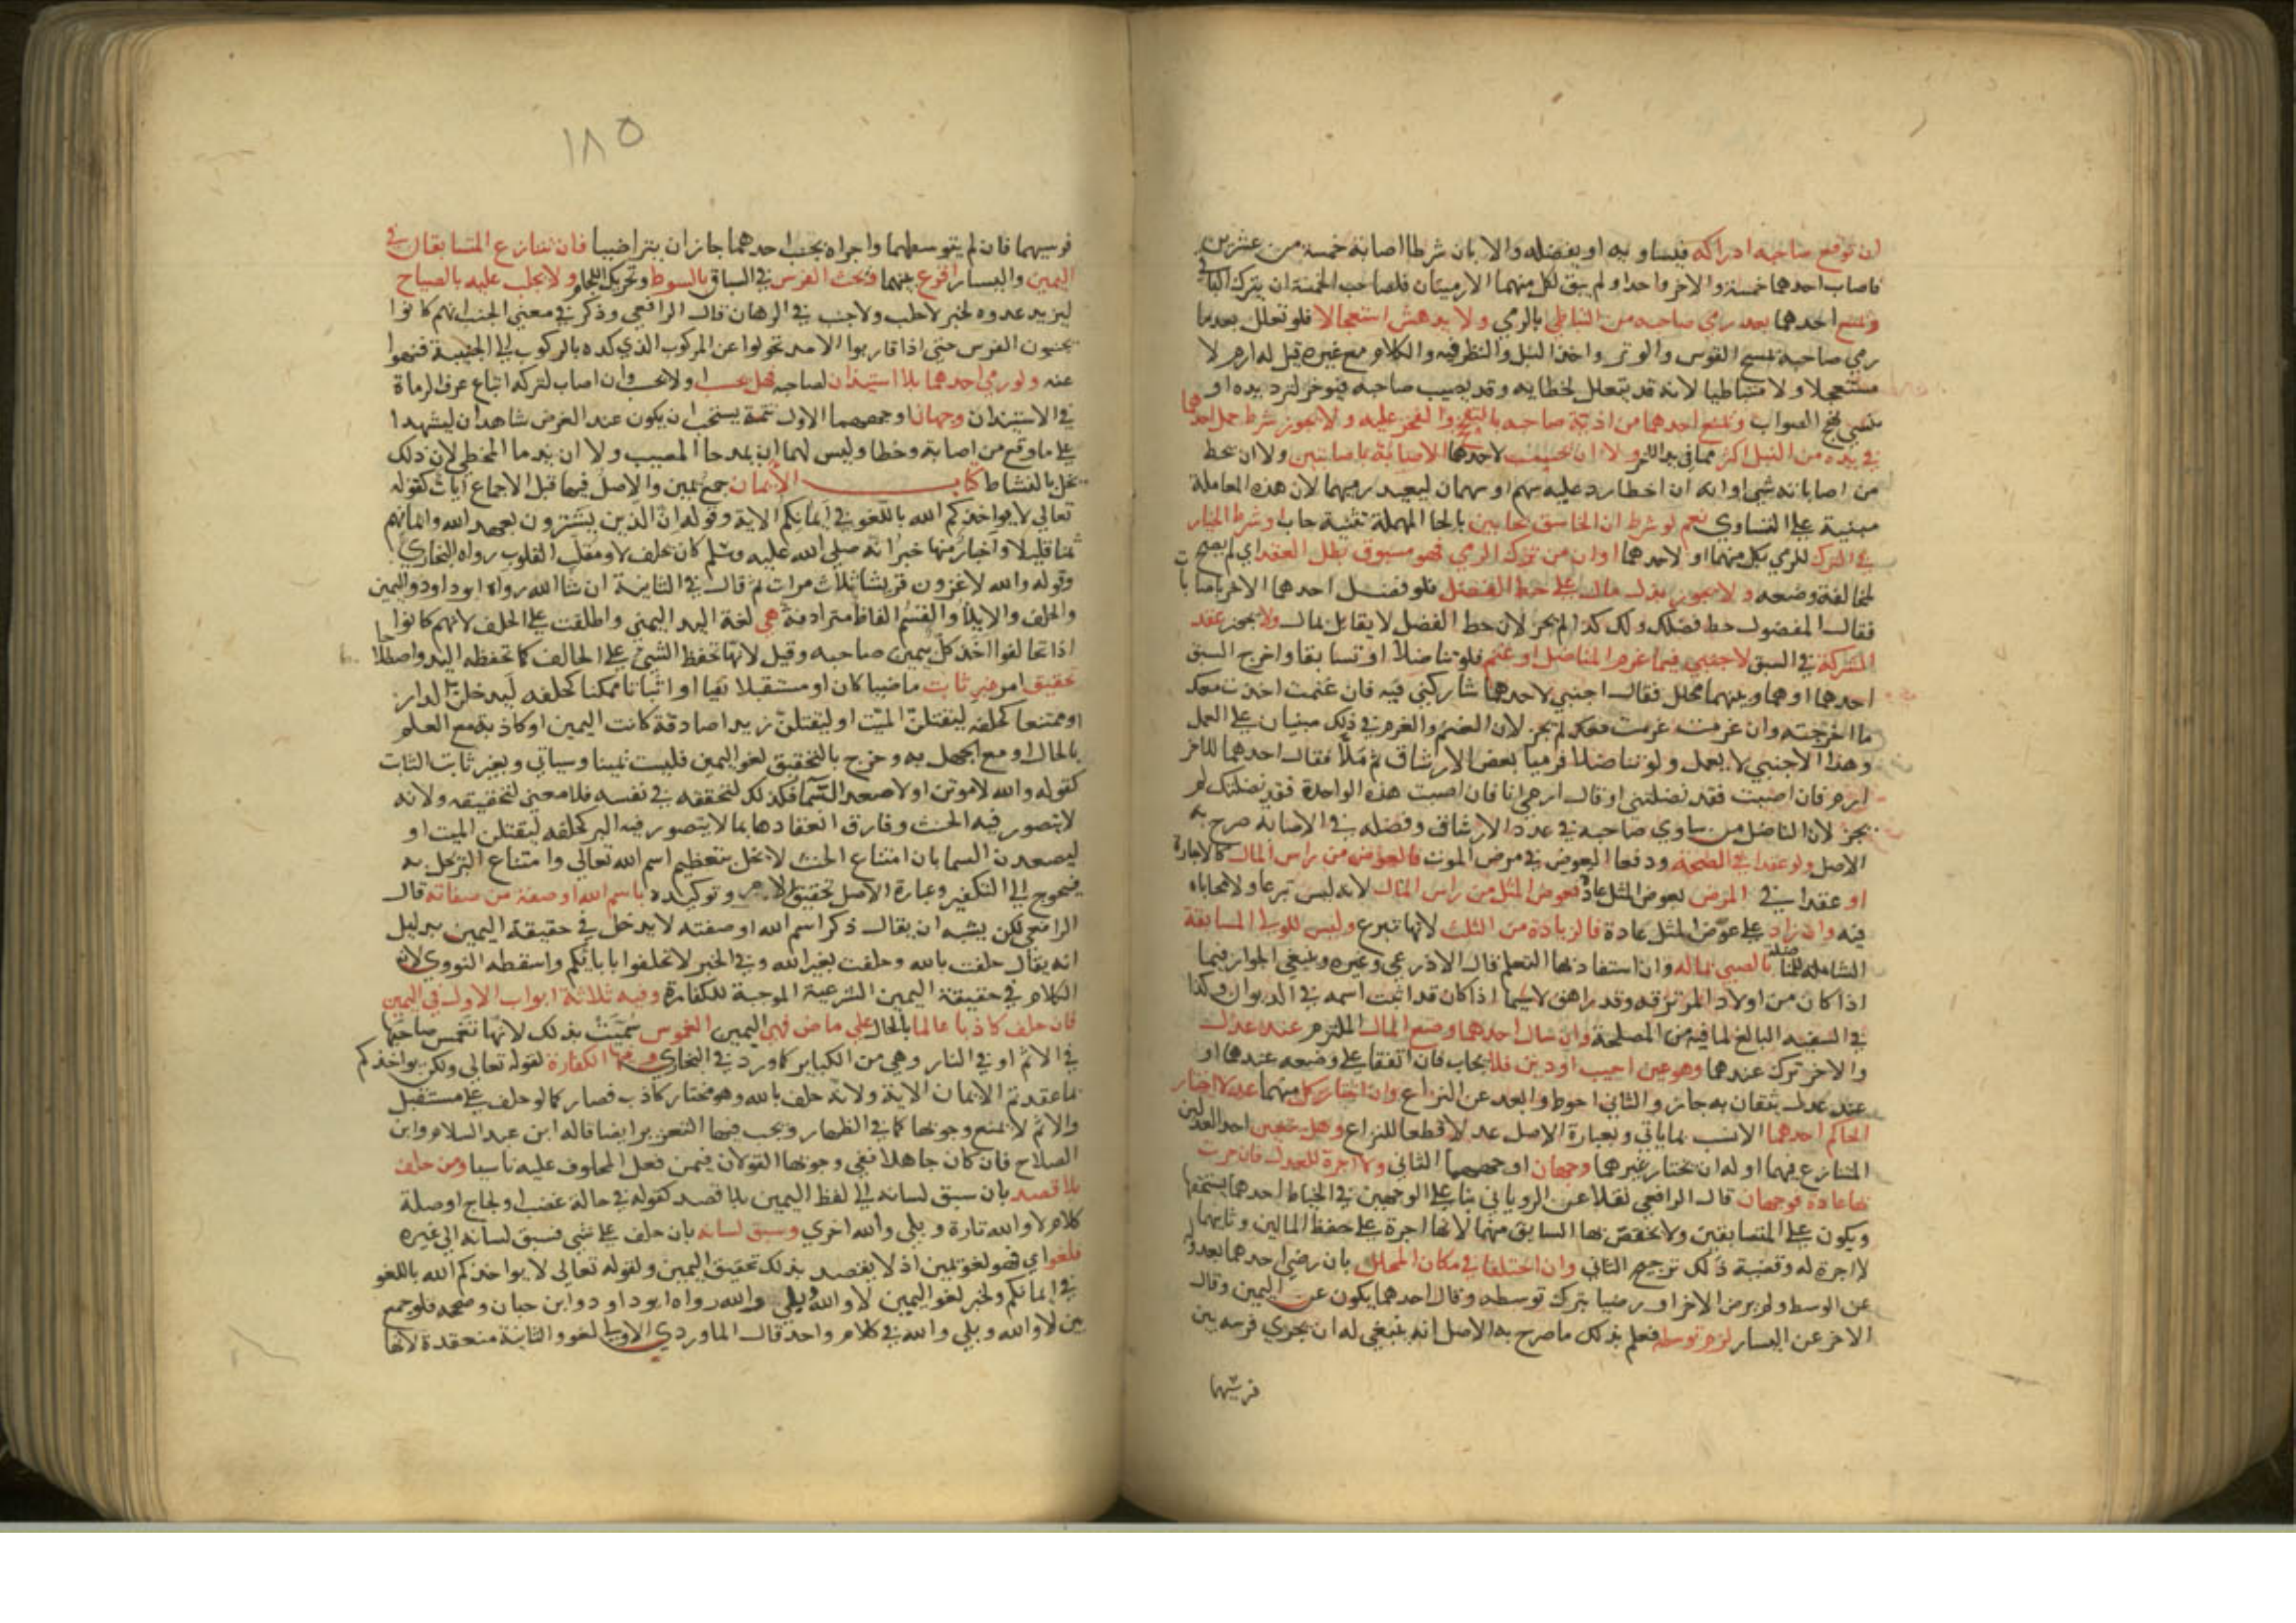 ان توقع صاحبه ادراكه فيساويه او يفضله والا بان شرطا اصابة خمسة من عشرين
فاصاب احدهما خمسة والاخر واحدا ولم يبق لكل منهما الا رميتان فلصاحب الخمسة ان يترك الباقي
ويمنع احدهما بعد رمي صاحبه من التباطي بالرمي ولا يدهش استعجالا فلو تعلل بعد ما
رمي صاحبه بمسح القوس والوتر واخذ النبل والنظر فيه والكلام مع غيره قيل له ارم لا
مستعجلا ولا متباطيا لانه قد يتعلل لخطايه وقد يصيب صاحبه فيوخر لترد يده او
ينسي نهج الصواب ويمنع احدهما من اذية صاحبه بالتبجح والفخر عليه ولا يجوز شرط حمل احدهما
في يده من النبل اكثر مما في يد الاخر ولا ان تحسب لاحدهما الاصابة باصابتين ولا ان تحط
من اصاباته شي او انه ان اخطا رد عليه سهم او سهمان ليعيد رميهما لان هذه المعاملة
مبنية علي التساوي نعم لو شرط ان الخاسق بحابيين بالحا المهملة تثنية حاب او شرط الخيار
في الترك للرمي بكل منهما او لاحدهما او ان من ترك الرمي فهو مسبوق بطل العقد اي لم يصح
لمخالفة وضعه ولا يجوز بذل مال علي حط الفضل فلو فضل احدهما الاخر باصابات
فقال المفضول حط فضلك ولك كذا لم يجز لان حط الفضل لا يقابل بمال ولا يجوز عقد
الشركة في السبق لاجنبي فيما غرم المناضل او غنم فلو تناضلا او تسابقا واخرج السبق
احدهما او هما وبينهما محلل فقال اجنبي لاحدهما شاركني فيه فان غنمت اخذت معك
ما اخرجته وان غرمت غرمت معك لم يجز لان الغنم والغرم في ذلك مبنيان علي العمل
وهذا الاجنبي لا يعمل ولو تناضلا فرميا بعض الارشاق ثم ملا فقال احدهما للاخر
ارم فان اصبت فقد نضلتني او قال ارمي انا فان اصبت هذه الواحدة فقد نضلتك لم
يجز لان الناضل من ساوي صاحبه في عدد الارشاق وفضله في الاصابة صرح به
الاصل ولو عقدا في الصحة ودفعا العوض في مرض الموت فالعوض من راس المال كالاجارة
او عقدا في المرض بعوض المثل عادة فعوض المثل من راس المال لانه ليس تبرعا ولا محاباه
فيه وان زاد علي عوض المثل عادة فالزيادة من الثلث لانها تبرع وليس للولي المسابقة
الشاملة للمناضلة بالصبي بماله وان استفاد بها التعلم قال الاذرعي وغيره وينبغي الجواز فيما
اذا كان من اولاد المرتزقة وقد راهق لا سيما اذا كان قد اثبت اسمه في الديوان وكذا
في السفيه البالغ لما فيه من المصلحة وان سال احدهما وضع المال الملتزم عند عدل
والاخر تركه عندهما وهو عين اجيب او دين فلا يجاب فان اتفقا علي وضعه عندهما او
عند عدل يثقان به جاز والثاني احوط وابعد عن النزاع وان اختار كل منهما عدلا اختار
الحاكم احدهما الانسب بما ياتي وبعبارة الاصل عدلا قطعا للنزاع وهل يتعين احد العدلين
المتنازع فيهما او له ان يختار غيرهما وجهان اوجههما الثاني ولا اجرة للعدل فان جرت
بها عادة فوجهان قال الرافعي نقلا عن الروياني بنا علي الوجهين في الخياط احدهما يستحقها
ويكون علي المتسابقين ولا يختص بها السابق منهما لانها اجرة علي حفظ المالين وثانيهما
لا اجرة له وقضية ذلك ترجيح الثاني وان اختلفا في مكان المحلل بان رضي احدهما بعدوله
عن الوسط ولم يرض الاخر او رضيا بترك توسطه وقال احدهما يكون عن اليمين وقال
الاخر عن اليسار لزم توسطه فعلم بذلك ما صرح به الاصل انه ينبغي له ان يجري فرسه بين
فرسيهما
١٨٥
فرسيهما فان لم يتوسطهما واجراه بجنب احدهما جاز ان يتراضيا فان تنازع المتسابقان في
اليمين واليسار اقرع بينهما ويحث الفرس في السباق بالسوط وتحريك اللجام ولا يجلب عليه بالصياح
ليزيد عدوه لخبر لا جلب ولا جنب في الرهان قال الرافعي وذكر في معني الجنب انهم كانوا
يجنبون الفرس حتي اذا قاربوا الامد تحولوا عن المركوب الذي كده بالركوب الي الجنيبة فنهوا
عنه ولو رمي احدهما بلا استيذان لصاحبه فهل يحسب او لا يحسب وان اصاب لتركه اتباع عرف الرماة
في الاستيذان وجهان اوجههما الاول تتمة يستحب ان يكون عند الغرض شاهدان ليشهدا
علي ما وقع من اصابة وخطا وليس لهما ان يمدحا المصيب ولا ان يذما المخطي لان ذلك
يخل بالنشاط كتاب الايمان جمع يمين والاصل فيها قبل الاجماع ايات كقوله
تعالي لا يواخذكم الله باللغو في ايمانكم الاية وقوله ان الذين يشترون بعهد الله وايمانهم
ثمنا قليلا واخبار منها خبر انه صلي الله عليه وسلم كان يحلف لا ومقلب القلوب رواه البخاري
وقوله والله لاغزون قريشا ثلاث مرات ثم قال في الثانية ان شا الله رواه ابو داود واليمين
والحلف والايلا والقسم الفاظ مترادفة هي لغة اليد اليمني واطلقت علي الحلف لانهم كانوا
اذا تحالفوا اخذ كل بيمين صاحبه وقيل لانها تحفظ الشي علي الحالف كما تحفظه اليد واصطلاحا
تحقيق امر غير ثابت ماضيا كان او مستقبلا نفيا او اثباتا ممكنا كحلفه ليدخلن الدار
او ممتنعا كحلفه ليقتلن الميت او ليقتلن زيدا صادقة كانت اليمين او كاذبة مع العلم
بالحال او مع الجهل به وخرج بالتحقيق لغو اليمين فليست يمينا وسياتي وبغير ثابت الثابت
كقوله والله لاموتن او لا صعد السما فكذلك لتحققه في نفسه فلا معني لتحقيقه ولانه
لا يتصور فيه الحنث وفارق انعقادها بما لا يتصور فيه البر كحلفه ليقتلن الميت او
ليصعدن السما بان امتناع الحنث لا يخل بتعظيم اسم الله تعالي وامتناع البر يخل به
فيحوج الي التكفير وعبارة الاصل تحقيق الامر وتوكيده باسم الله او صفة من صفاته قال
الرافعي لكن يشبه ان يقال ذكر اسم الله او صفته لا يدخل في حقيقة اليمين بدليل
انه يقال حلفت بالله وحلفت بغير الله وفي الخبر لا تحلفوا باباتكم واسقطه النووي لان
الكلام في حقيقة اليمين الشرعية الموجبة للكفارة وفيه ثلاثة ابواب الاول في اليمين
فان حلف كاذبا عالما بالحال علي ماض فهي اليمين الغموس سميت بذلك لانها تغمس صاحبها
في الاثم او في النار وهي من الكباير كما ورد في البخاري وفيها الكفارة لقوله تعالي ولكن يواخذكم
بما عقدتم الايمان الاية ولانه حلف بالله وهو مختار كاذب فصار كما لو حلف علي مستقبل
والاثم لا يمنع وجوبها كما في الظهار ويجب فيها التعزير ايضا قاله ابن عبد السلام وابن
الصلاح فان كان جاهلا ففي وجوبها القولان فيمن فعل المحلوف عليه ناسيا ومن حلف
بلا قصد بان سبق لسانه الي لفظ اليمين بلا قصد كقوله في حالة غضب او لجاج او صلة
كلام لا والله تارة وبلي والله اخري وسبق لسانه بان حلف علي شي فسبق لسانه الي غيره
فلغو اي فهو لغو يمين اذ لا يقصد بذلك تحقيق اليمين ولقوله تعالي لا يواخذكم الله باللغو
في ايمانكم ولخبر لغو اليمين لا والله وبلي والله رواه ابو داود وابن حبان وصححه فلو جمع
بين لا والله وبلي والله في كلام واحد قال الماوردي الاولي لغو والثانية منعقدة لانها